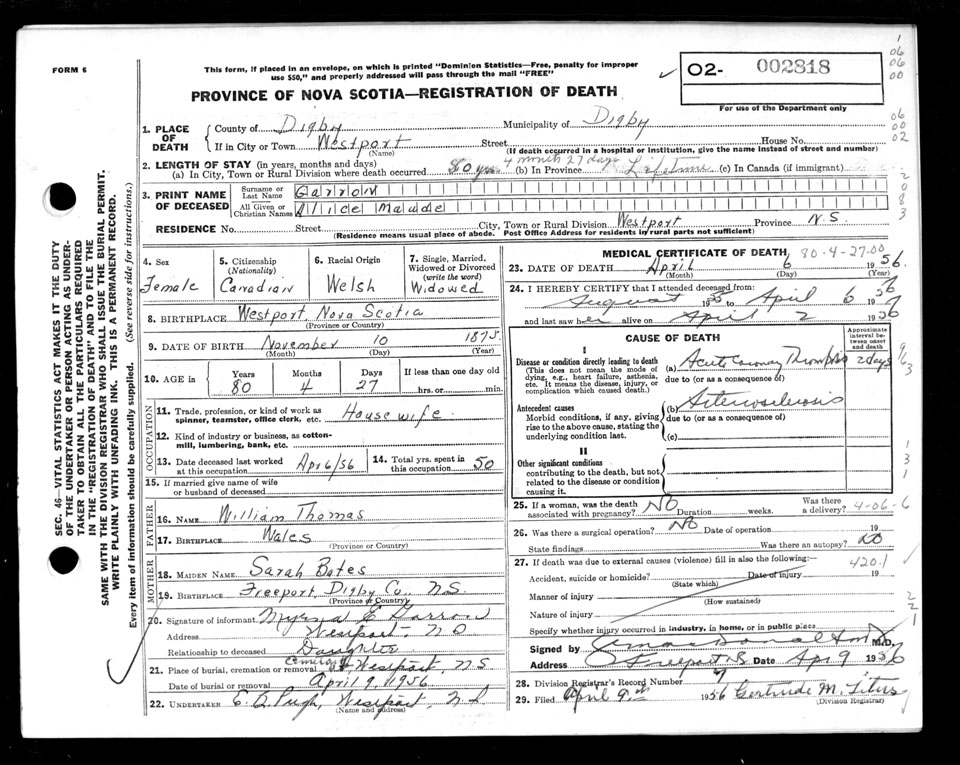 FORM 6
This form, if placed in an envelope, on which is printed "Dominion Statistics—Free, penalty for improper
use $50," and properly addressed will pass through the mail "FREE"
PROVINCE OF NOVA SCOTIA—REGISTRATION OF DEATH
02- 002818
For use of the Department only
1
06
06
00
06
00
02
2083
9/63
131
221
SEC. 46—VITAL STATISTICS ACT MAKES IT THE DUTY
OF THE UNDERTAKER OR PERSON ACTING AS UNDER-
TAKER TO OBTAIN ALL THE PARTICULARS REQUIRED
IN THE "REGISTRATION OF DEATH" AND TO FILE THE
SAME WITH THE DIVISION REGISTRAR WHO SHALL ISSUE THE BURIAL PERMIT.
WRITE PLAINLY WITH UNFADING INK. THIS IS A PERMANENT RECORD.
Every item of information should be carefully supplied. (See reverse side for instructions.)
1. PLACE OF DEATH
County of Digby Municipality of Digby
If in City or Town Westport Street House No.
(Name) (If death occurred in a hospital or institution, give the name instead of street and number)
2. LENGTH OF STAY (in years, months and days)
(a) In City, Town or Rural Division where death occurred 80 yrs 4 month 27 days (b) In Province Lifetime (c) In Canada (if immigrant)
3. PRINT NAME OF DECEASED
Surname or Last Name Garron
All Given or Christian Names Alice Maude
RESIDENCE No. Street City, Town or Rural Division Westport Province N.S.
(Residence means usual place of abode. Post Office Address for residents in rural parts not sufficient)
4. Sex
Female
5. Citizenship (Nationality)
Canadian
6. Racial Origin
Welsh
7. Single, Married, Widowed or Divorced (write the word)
Widowed
8. BIRTHPLACE Westport Nova Scotia
(Province or Country)
9. DATE OF BIRTH November 10 1875.
(Month) (Day) (Year)
10. AGE in Years 80 Months 4 Days 27 If less than one day old
hrs. or min.
OCCUPATION
11. Trade, profession, or kind of work as
spinner, teamster, office clerk, etc. House wife.
12. Kind of industry or business, as cotton-
mill, lumbering, bank, etc.
13. Date deceased last worked
at this occupation Apr 6/56
14. Total yrs. spent in
this occupation 50
15. If married give name of wife
or husband of deceased
FATHER
16. NAME William Thomas
17. BIRTHPLACE Wales
(Province or Country)
MOTHER
18. MAIDEN NAME Sarah Bates
19. BIRTHPLACE Freeport Digby Co., N.S.
(Province or Country)
20. Signature of informant E Garron
Address Westport, N S
Relationship to deceased Daughter
21. Place of burial, cremation or removal Westport, N S
Date of burial or removal April 9, 1956
22. UNDERTAKER Pugh, Westport, N.S
(Name and address)
MEDICAL CERTIFICATE OF DEATH 80-4-27.00
23. DATE OF DEATH April 6 1956.
(Month) (Day) (Year)
24. I HEREBY CERTIFY that I attended deceased from:
August 1955 to April 6 1956
and last saw her alive on April 2 1956
CAUSE OF DEATH
Approximate interval between onset and death
I
Disease or condition directly leading to death
(This does not mean the mode of
dying, e.g., heart failure, asthenia,
etc. It means the disease, injury, or
complication which caused death.)
(a) Acute Coronary Thrombosis 2 days
due to (or as a consequence of)
Antecedent causes
Morbid conditions, if any, giving
rise to the above cause, stating the
underlying condition last.
(b) Arteriosclerosis
due to (or as a consequence of)
(c)
II
Other significant conditions
contributing to the death, but not
related to the disease or condition
causing it.
25. If a woman, was the death
associated with pregnancy? No Duration weeks. Was there
a delivery? 4-06-6
26. Was there a surgical operation? No Date of operation 19
State findings Was there an autopsy? No
27. If death was due to external causes (violence) fill in also the following:— 420.1
Accident, suicide or homicide? Date of injury 19
(State which)
Manner of injury
(How sustained)
Nature of injury
Specify whether injury occurred in industry, in home, or in public place
Signed by M.D.
Address Freeport NS Date Apr 9 1956
28. Division Registrar's Record Number 7
29. Filed April 9th 1956 Gertrude M. Titus
(Division Registrar)